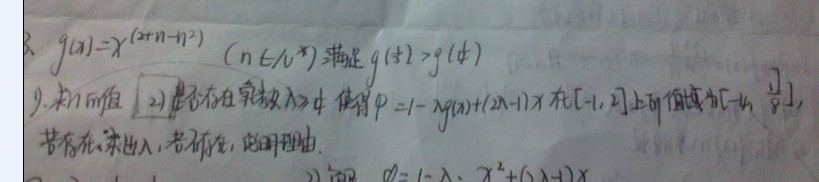 3、g(x)=x^(2+n-n²) (n∈N*)满足g(3)>g(4)
1).求n的值 2)是否存在实数λ>4 使得φ=1-λg(x)+(2λ-1)x在[-1,2]上的值域为[-4, 17/8],
若存在、求出λ,若不存在,说明理由.
φ=1-λ·x²+(2λ-1)x